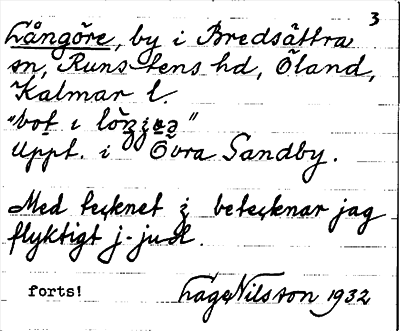 3
Långöre, by i Bredsättra
sn, Runstens hd, Öland,
Kalmar l.
"bot ı
Uppt. i Övra Sandby.
Med tecknet betecknar jag
flyktigt j-ljud.
forts! Lage Nilsson 1932